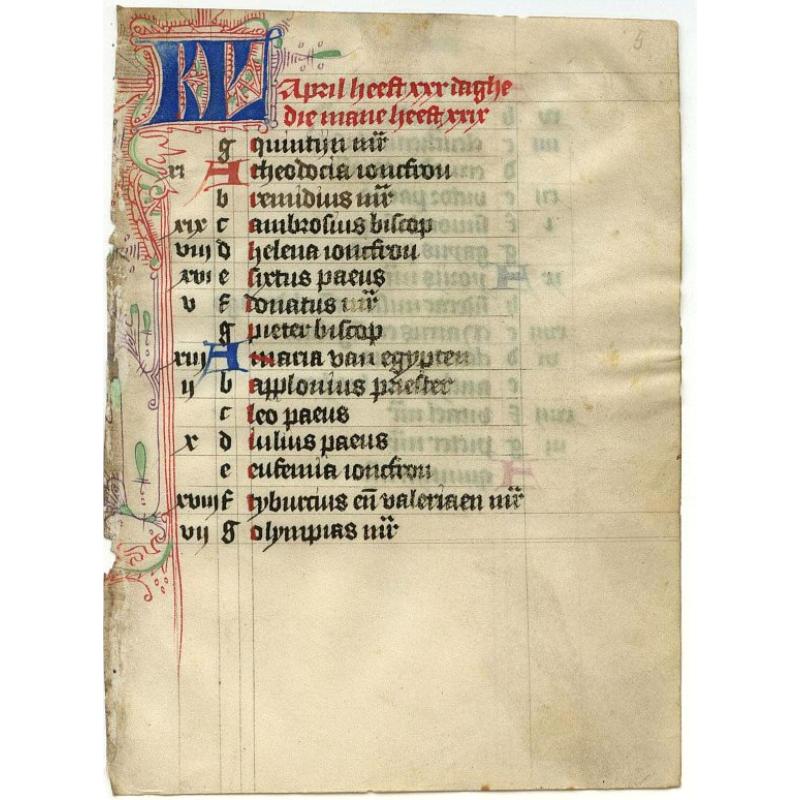 5
KL April heeft xxx daghe
die mane heeft xxix
g quintijn mr
xi A theodocia ioncfrou
b remidius mr
xix c ambrosius biscop
viii d helena ioncfrou
xvi e sixtus paeus
v f donatus mr
g pieter biscop
xiii A maria van egypten
ii b applonius priester
c leo paeus
x d iulius paeus
e eufemia ioncfrou
xviii f tyburcius en valeriaen mr
vii g olympias mr